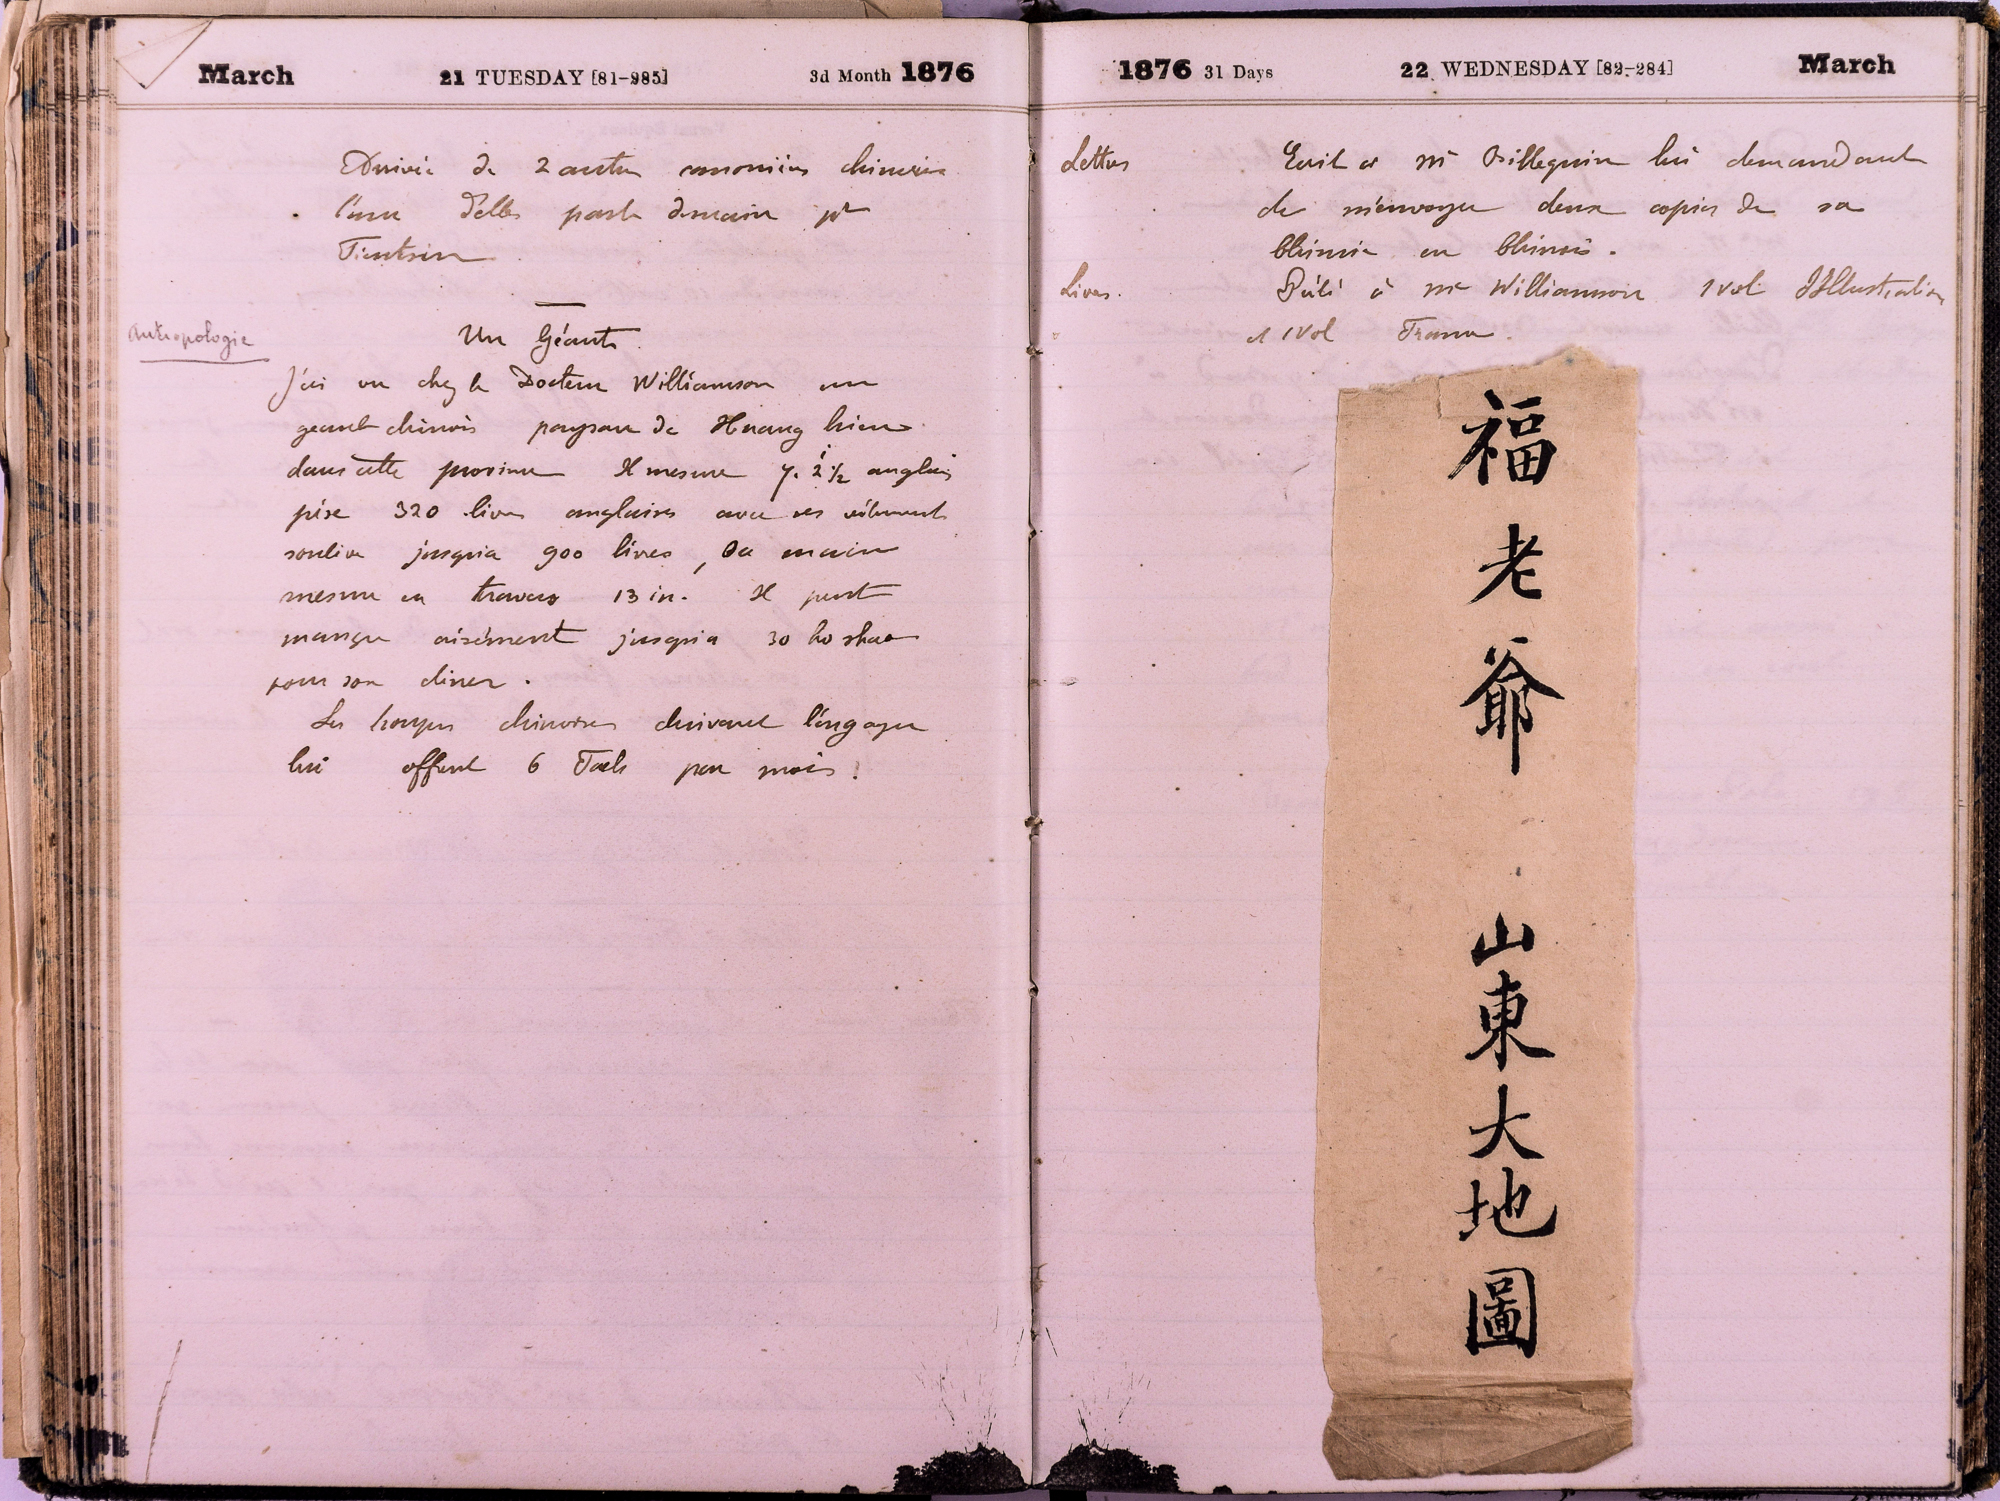 March 21 TUESDAY [81-285] 3d Month 1876
Arrivée de 2 autres canonnières chinoises
l'une d'elles part demain pr
Tientsin
Antropologie
Un Géant
J'ai vu chez le Docteur Williamson un
geant chinois paysan de Hwang hien
dans cette province Il mesure 7. 2 1/2 anglais
pèse 320 livres anglaises avec ses vêtements
soulève jusqu'a 900 livres, Sa main
mesure en travers 13 in. Il peut
manger aisément jusqu'a 30
pour son diner.
Les troupes chinoises desirant l'engager
lui offrent 6 Taels par mois.
1876 31 Days 22 WEDNESDAY [82-284] March
Lettres Ecrit a Mr Billequin lui demandant
de m'envoyer deux copies de sa
Chimie en Chinois.
Livres. Prété à Mr Williamson 1 vol Illustration
et 1 vol
福老爺 山東大地圖